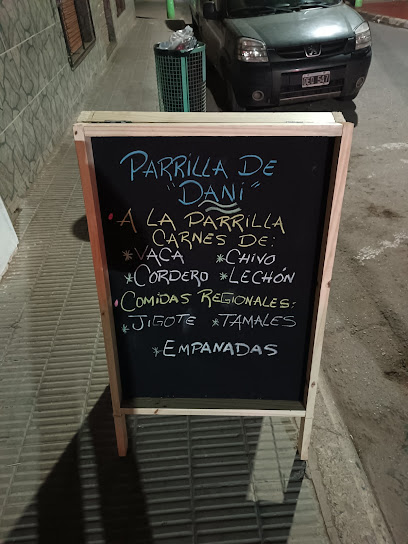 PARRILLA DE
"DANI"
• A LA PARRILLA
CARNES DE:
*VACA *CHIVO
*CORDERO *LECHÓN
• COMIDAS REGIONALES:
*JIGOTE *TAMALES
*EMPANADAS